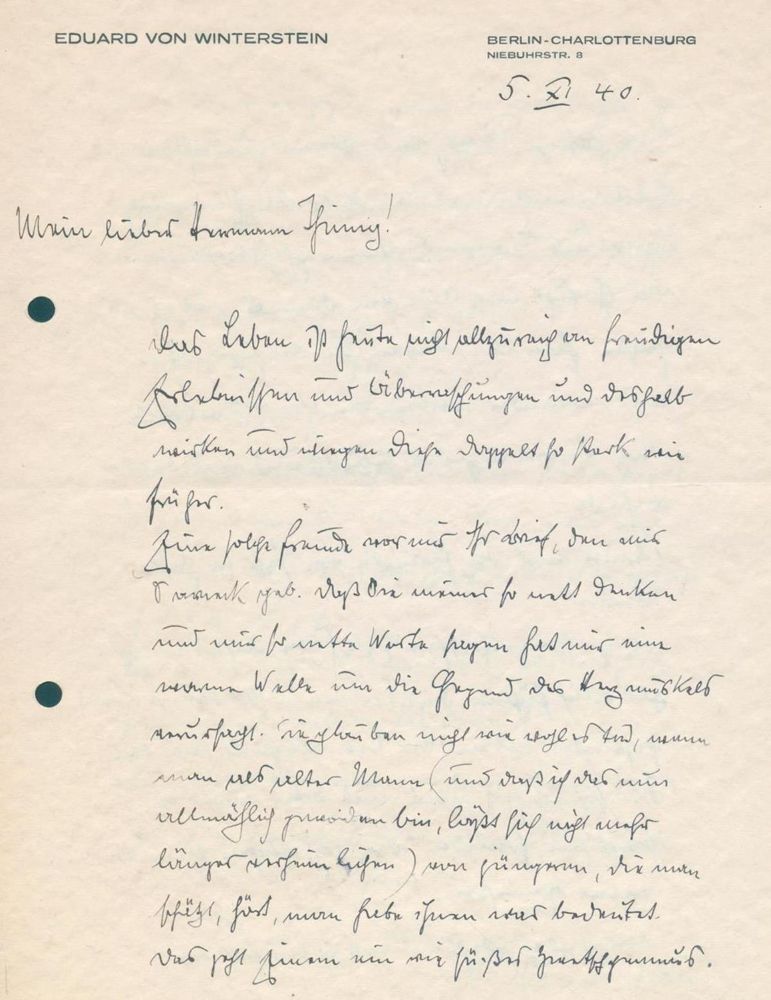 EDUARD VON WINTERSTEIN
BERLIN-CHARLOTTENBURG
NIEBUHRSTR. 8
5. XI 40.
Mein lieber Hermann Thimig!
Das Leben ist heute nicht allzu reich an freudigen
Erlebnissen und Überraschungen und deshalb
wirken und wiegen diese doppelt so stark wie
früher.
Eine solche Freude war mir Ihr Brief, den mir
gab. Daß Sie meiner so nett denken
und mir so nette Worte sagen hat mir eine
warme Welle um die Gegend des Herzmuskels
verursacht. Sie glauben nicht wie wohl es tut, wenn
man als alter Mann (und daß ich das nun
allmählich geworden bin, läßt sich nicht mehr
länger verheimlichen) von jüngeren, die man
schätzt, hört, man habe ihnen was bedeutet.
Das geht Einem ein wie süßes